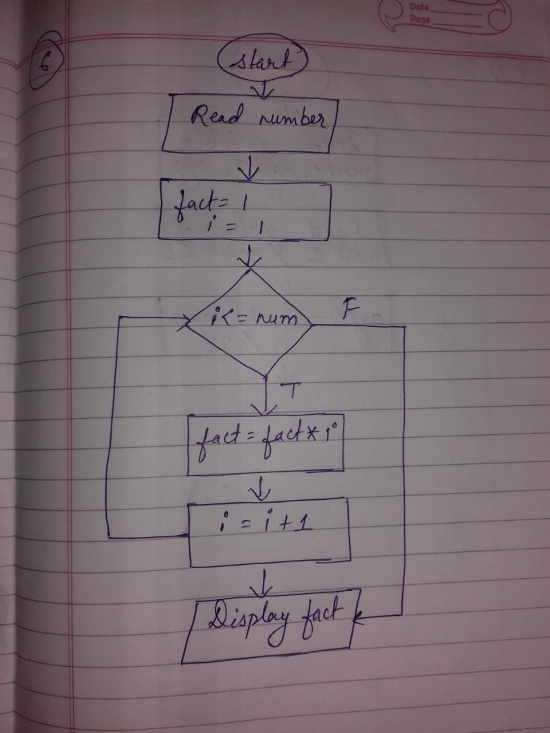 Date
Page
6
Start
Read number
fact = 1
i = 1
i <= num
F
T
fact = fact * i
i = i + 1
Display fact